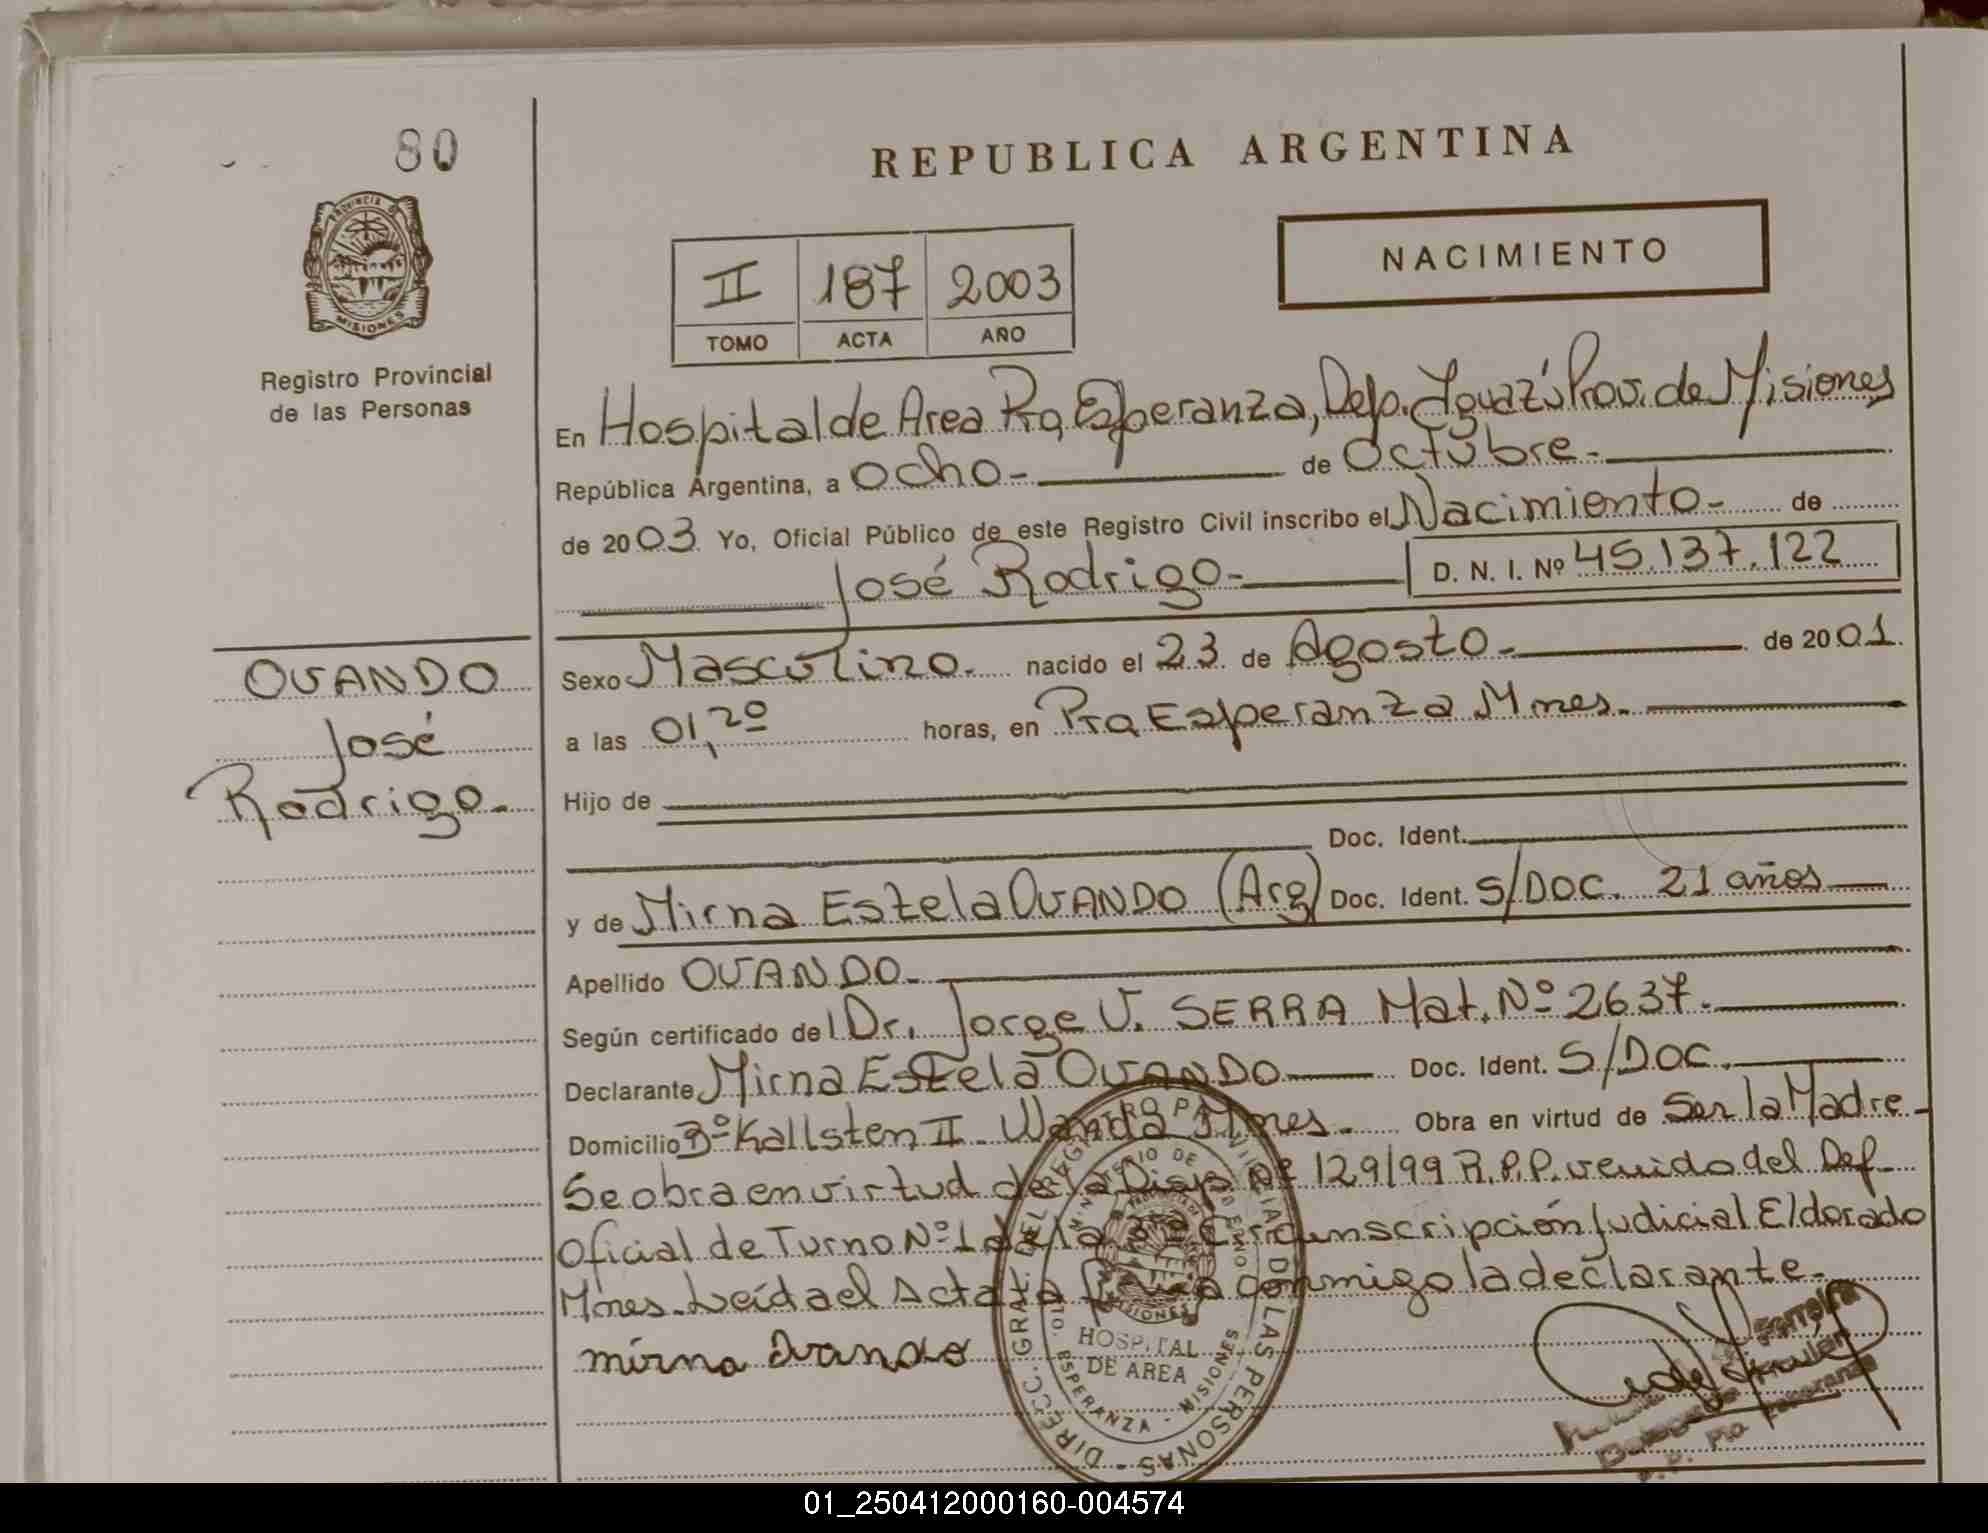 80
REPUBLICA ARGENTINA
PROVINCIA DE
MISIONES
Registro Provincial
de las Personas
II 187 2003
TOMO ACTA AÑO
NACIMIENTO
En Hospital de Area Pto Esperanza, Dep. Iguazú Prov. de Misiones
República Argentina, a ocho - de Octubre -
de 2003. Yo, Oficial Público de este Registro Civil inscribo el Nacimiento - de
José Rodrigo - D. N. I. Nº 45.137.122
OVANDO
José
Rodrigo -
Sexo Masculino. nacido el 23 de Agosto - de 2001.
a las 01,20 horas, en Pto Esperanza Mnes.
Hijo de
Doc. Ident.
y de Mirna Estela OVANDO (Arg) Doc. Ident. S/DOC. 21 años
Apellido OVANDO -
Según certificado del Dr. Jorge V. SERRA Mat. Nº 2637.
Declarante Mirna Estela OVANDO Doc. Ident. S/DOC.
Domicilio Bº Kallsten II - Wanda Mnes. Obra en virtud de Ser la Madre -
Se obra en virtud de la Disp Nº 129/99 R.P.P. venido del Def.
Oficial de Turno Nº 1 de la 3ra Circunscripción Judicial Eldorado
Mnes. Leída el Acta la firma conmigo la declarante -
mirna Ovando
DIRECC. GRAL. DEL REGISTRO PROVINCIAL DE LAS PERSONAS
MINISTERIO DE GOBIERNO
MISIONES
HOSPITAL
DE AREA
PTO. ESPERANZA - MISIONES
Ferreira
Titular
01_250412000160-004574